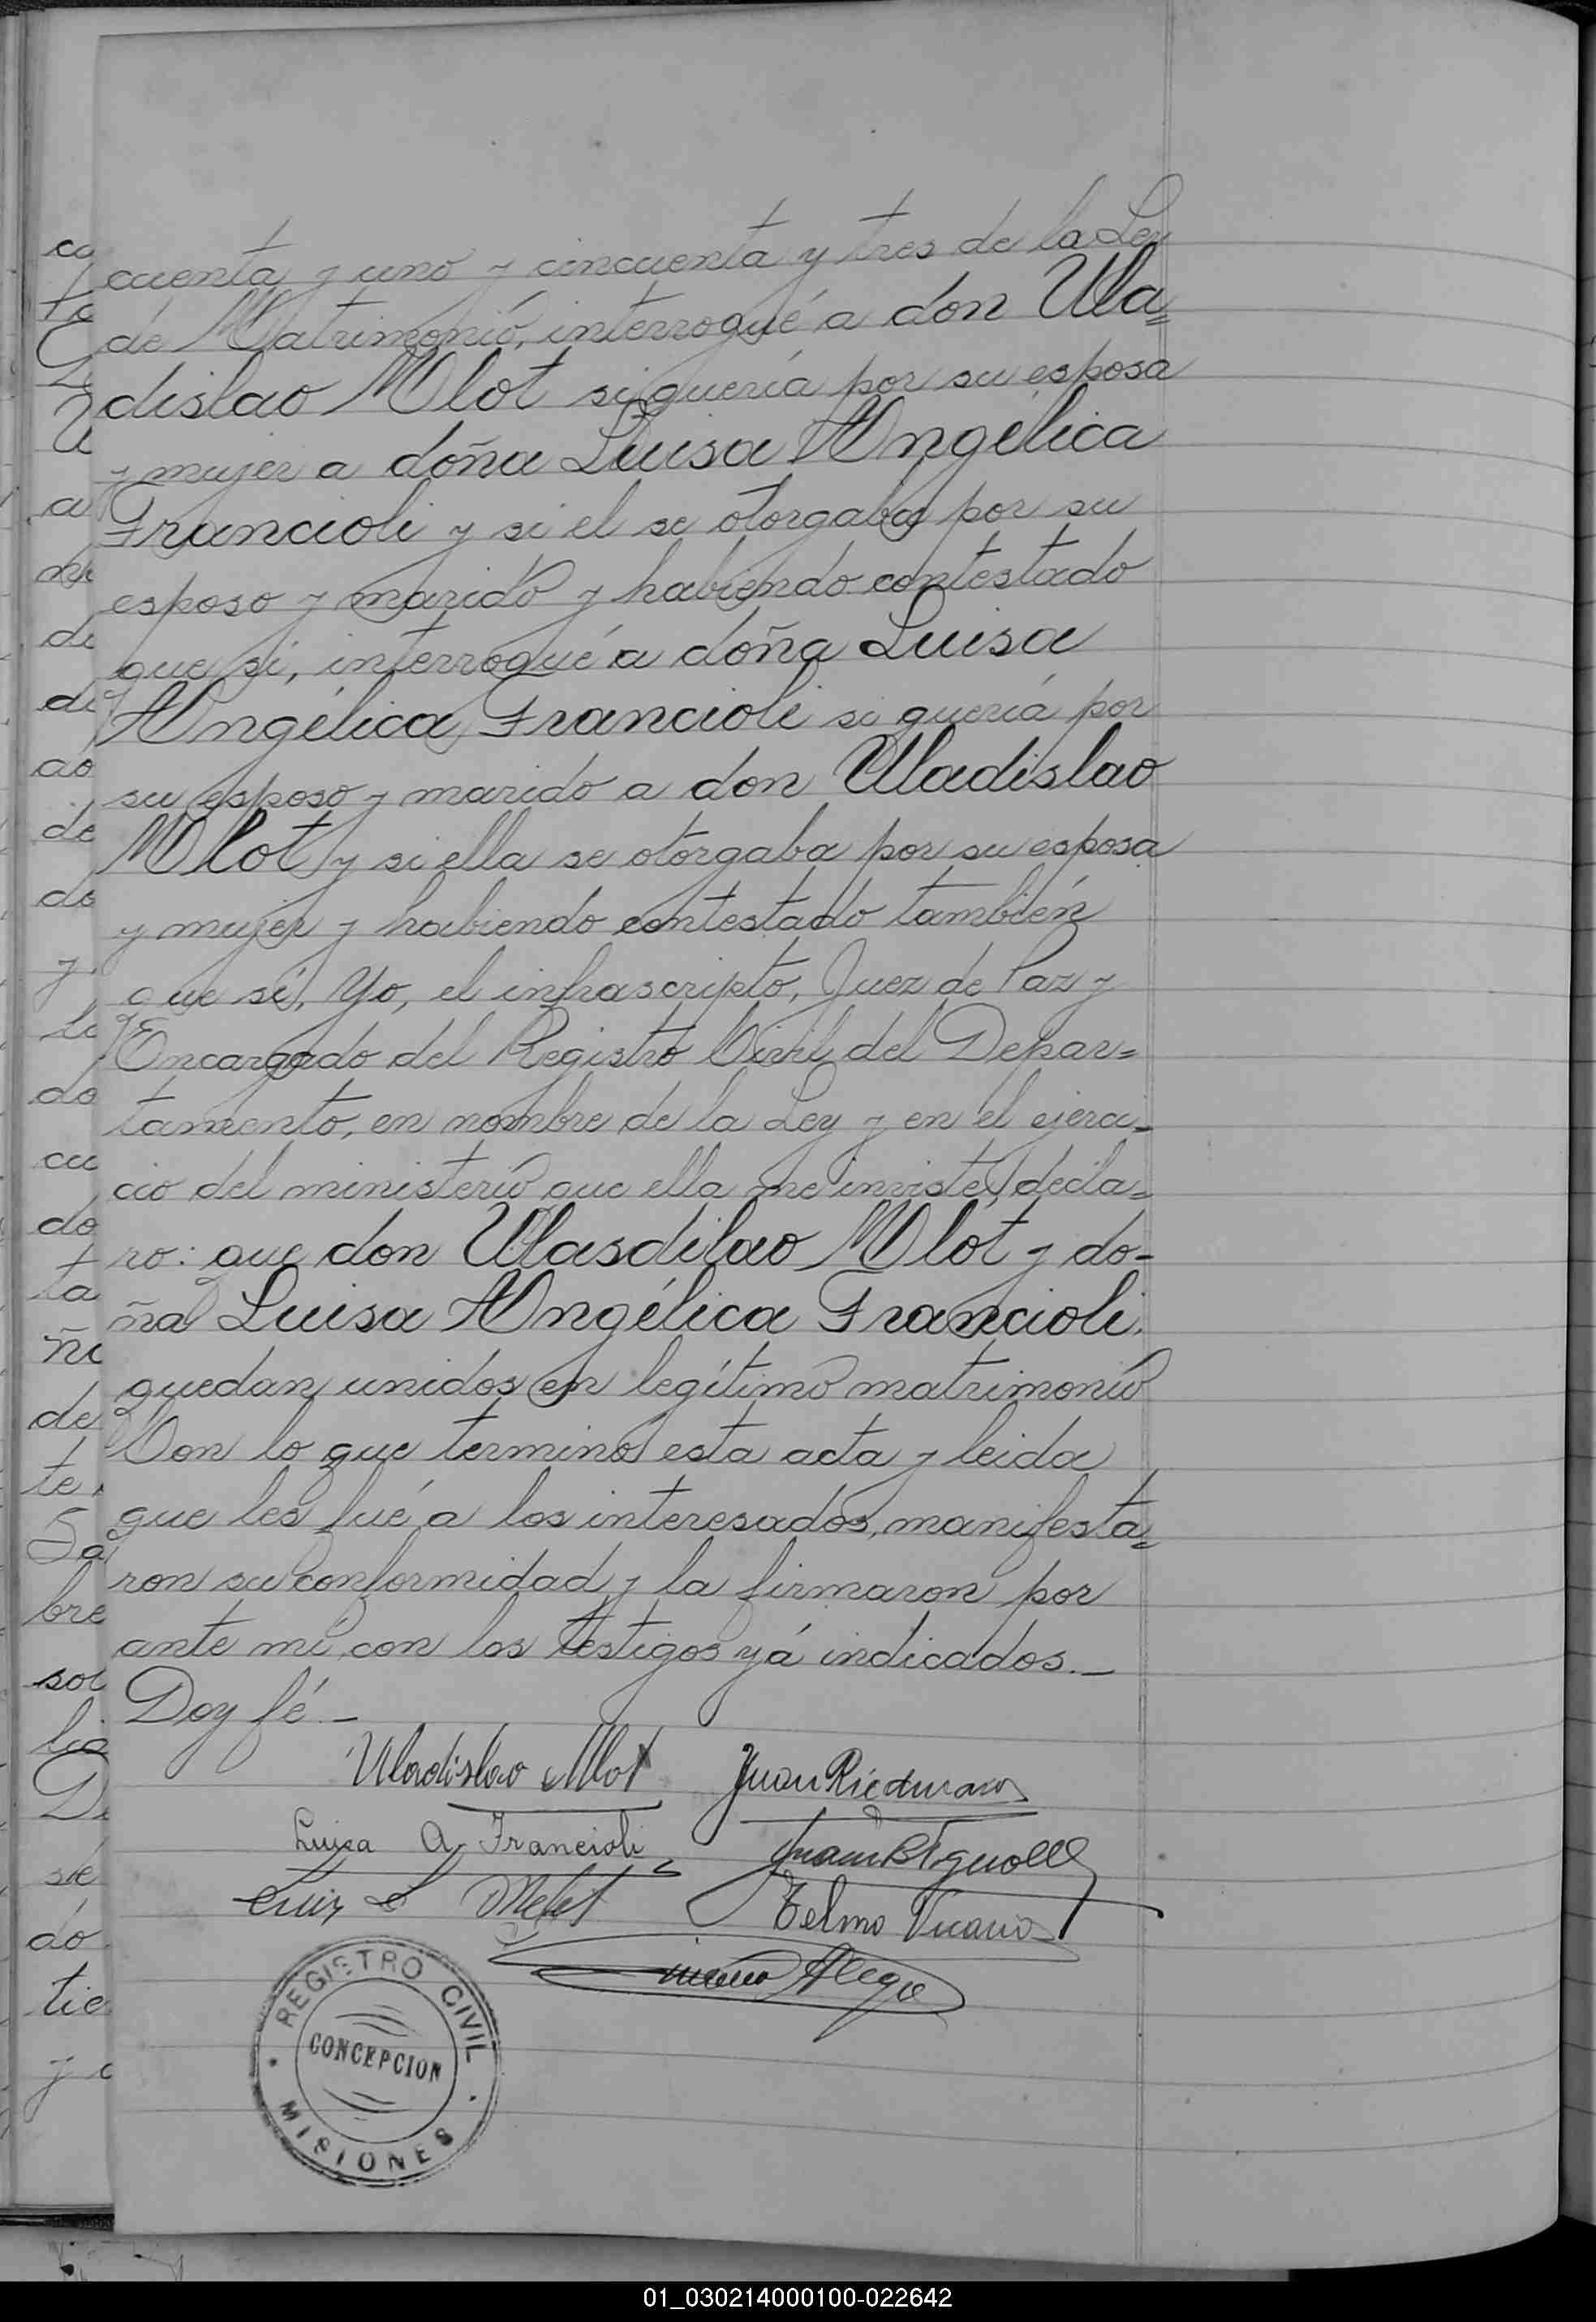 cuenta y uno y cincuenta y tres de la Ley
de Matrimonio, interrogué a don Ula=
dislao Mlot si quería por su esposa
y mujer a doña Luisa Angélica
Francioli y si el se otorgaba por su
esposo y marido y habiendo contestado
que si, interrogué a doña Luisa
Angélica Francioli si quería por
su esposo y marido a don Uladislao
Mlot y si ella se otorgaba por su esposa
y mujer y habiendo contestado también
que si, Yo, el infrascripto, Juez de Paz y
Encargado del Registro Civil del Depar=
tamento, en nombre de la Ley y en el ejerci=
cio del ministerio que ella me inviste, decla=
ro: que don Ulasdilao Mlot y do-
ña Luisa Angélica Francioli,
quedan unidos en legítimo matrimonio
Con lo que terminó esta acta y leida
que les fué a los interesados, manifesta=
ron su conformidad y la firmaron por
ante mi con los testigos yá indicados.—
Doy fé.—
Uladislao Mlot Juan Riedmann
Luisa A. Francioli Juan B.
Luis Telmo
Alega
REGISTRO CIVIL
CONCEPCION
MISIONES
01_030214000100-022642